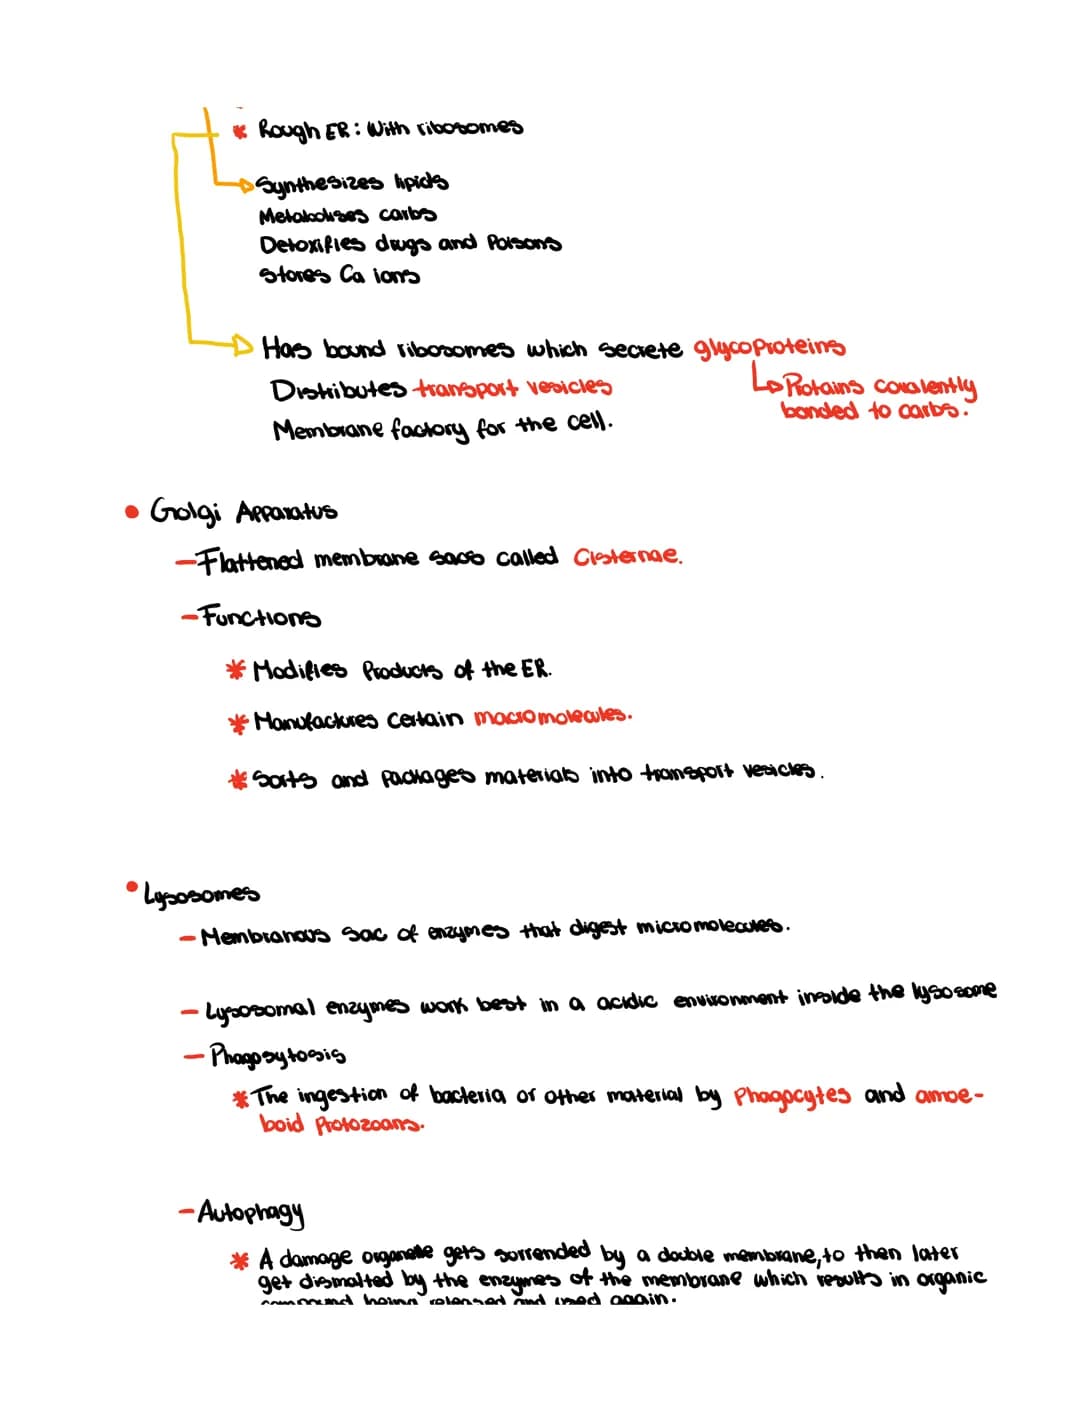 * Rough ER: With ribosomes
Synthesizes lipids
Metabolises carbs
Detoxifies drugs and Poisons
Stores Ca ions
Has bound ribosomes which secrete glycoproteins
Distributes transport vesicles
↳ Protains covalently
bonded to carbs.
Membrane factory for the cell.
• Golgi Apparatus
– Flattened membrane sacs called Cisternae.
– Functions
* Modifies Products of the ER.
* Manufactures certain macromolecules.
* Sorts and Packages materials into transport vesicles.
• Lysosomes
– Membranous sac of enzymes that digest micromolecules.
– Lysosomal enzymes work best in a acidic environment inside the lysosome
– Phagosytosis
* The ingestion of bacteria or other material by Phagocytes and amoe-
boid Protozoans.
– Autophagy
* A damage organelle gets sorrended by a double membrane, to then later
get dismalted by the enzymes of the membrane which results in organic
compound being released and used again.